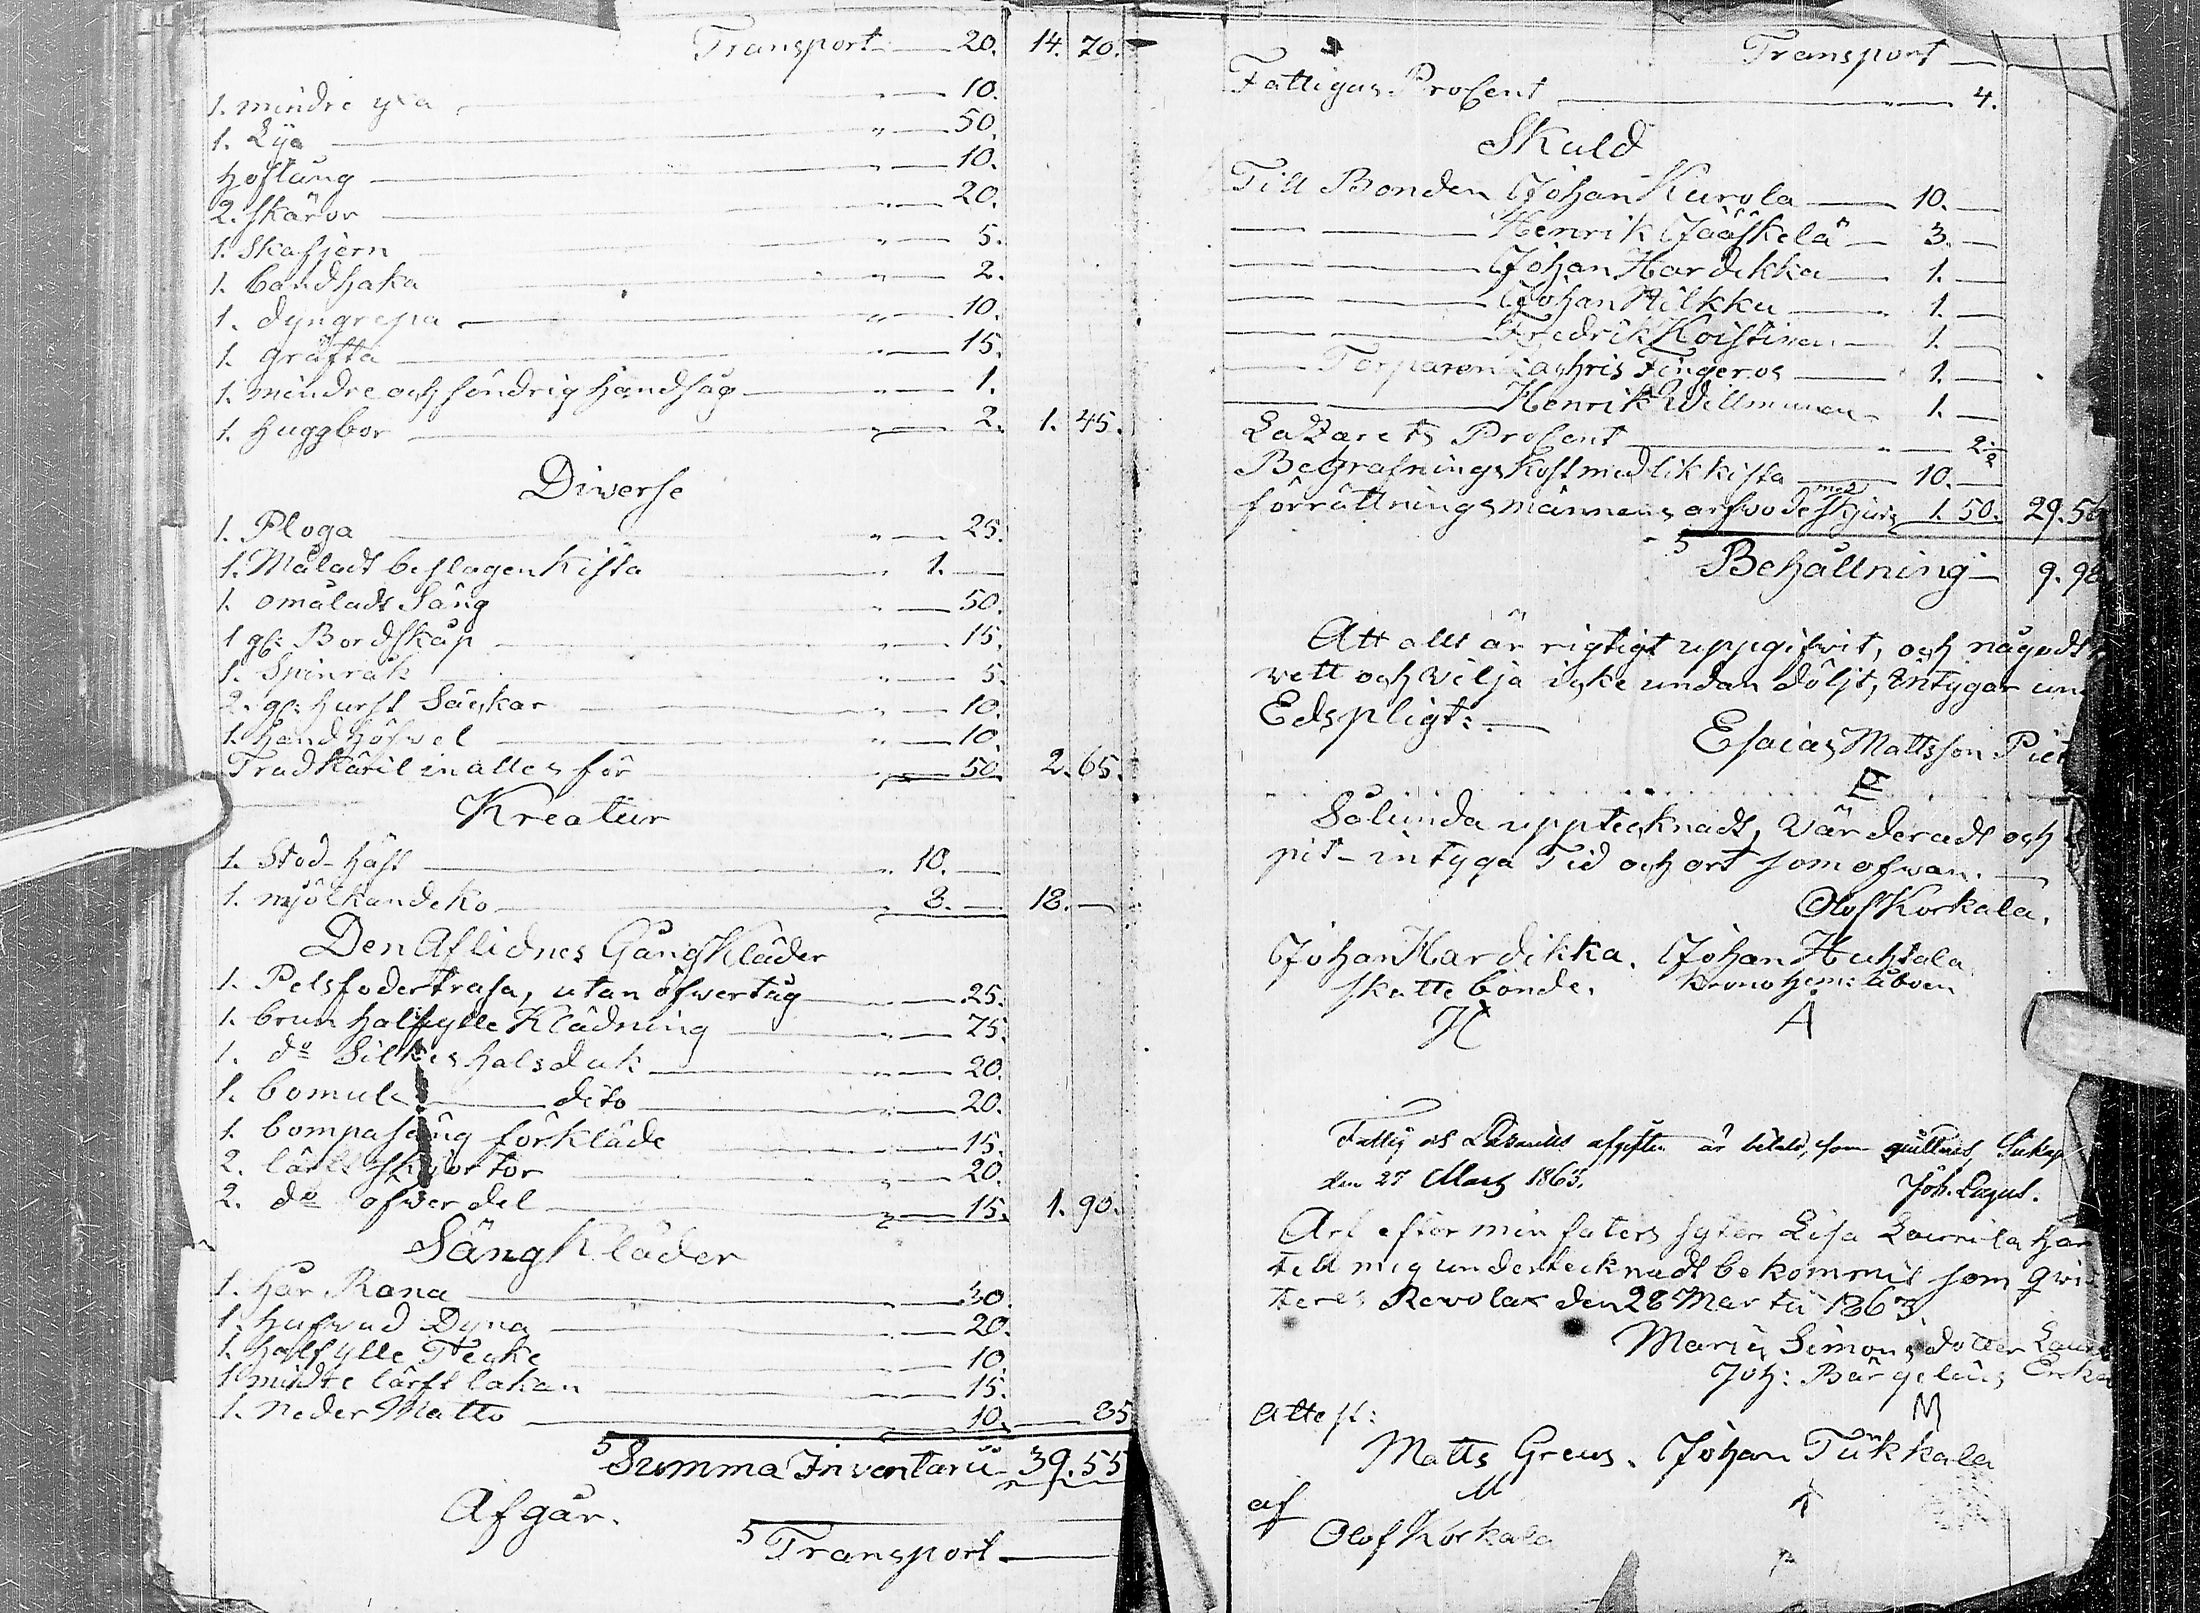 Transport — 20. 14. 70.
1. mindre yxa — " — 10.
1. Lya — " — 50.
Hoftång — " — 10.
2. skäror — " — 20.
1. Skafjern — " — 5.
1. bandhaka — " — 2.
1. dyngrepa — " — 10.
1. gräfta — " — 15.
1. mindre och söndrig handsåg — " — 1.
1. huggbor — " — 2. 1. 45.
Diverse
1. Ploga — " — 25.
1. Måladt beslagen Kista — " 1. —
1. omåladt Säng — " — 50.
1 gl: Bordskåp — " — 15.
1. Spinråk — " — 5.
2. gl: hurst Säckar — " — 10.
1. handhöfvel — " — 10.
Trad Käril in alles för — " — 50. 2. 65.
Kreatur
1. Stod-häst — " 10. —
1. mjölkande ko — " 8. — 18. —
Den Aflidnes Gångkläder
1. Pelsfodertrasa, utan öfwertug — " — 25.
1. brun halfylle Klädning — " — 75.
1. do Silkes halsduk — " — 20.
1. bomuls — dito — " — 20.
1. bompasang förkläde — " — 15.
2. lärfts skjortor — " — 20.
2. do öfwerdel — " — 15. 1. 90.
Sängkläder
1. Hår Rana — " — 30.
1. Hufwud Dyna — " — 20.
1. halfylle Tecke — " — 10.
1 mindre lärft lakan — " — 15.
1. neder Matto — " — 10. — 85
Summa Inventarii 39. 55
Afgår.
Transport —
Transport —
Fattigas ProCent — " — 4.
Skuld
Till Bonden Johan Kurola — 10. —
— — Henrik Jääskelä — 3. —
— — Johan Hardikka — 1. —
— — Johan Hilkku — 1. —
— — Fredrik Koistinen — 1. —
— Torparen Zachris Fingeros — 1. —
— — Henrik Willmunen — 1. —
Lazarets ProCent — " — 2½
Begrafnings Kost med likkista — 10. —
förrättningsmännens arfwode med Skjuts 1. 50. 29. 56
Behållning — 9. 98
Att allt är rigtigt uppgifwit, och någodt
vett och wilja icke undan döljt, intygar un
Edspligt: —
Esaias Mattsson Piet
P
Sålunda upptecknadt, värderadt och
pit- intyga Tid och ort som ofwan. —
Olof Korkala.
Johan Hardikka. Johan Huhtala
skatte bonde. Kronohem: åboen
H Å
Fattig och Lazaretts afgiften är betald, som quitteras, Siikajo
den 27 Mars 1863.
Joh. Lagus.
Arf efter min faters syter Lisa Laurila har
till mig undertecknadt bekommit som qvit
teres Revolax den 28 Martii 1863.
Maria Simonsdotter Laur
Joh: Bärgelius Enka
M
Attest:
Matts Greus. Johan Tükkala
M
af
Olof Korkala